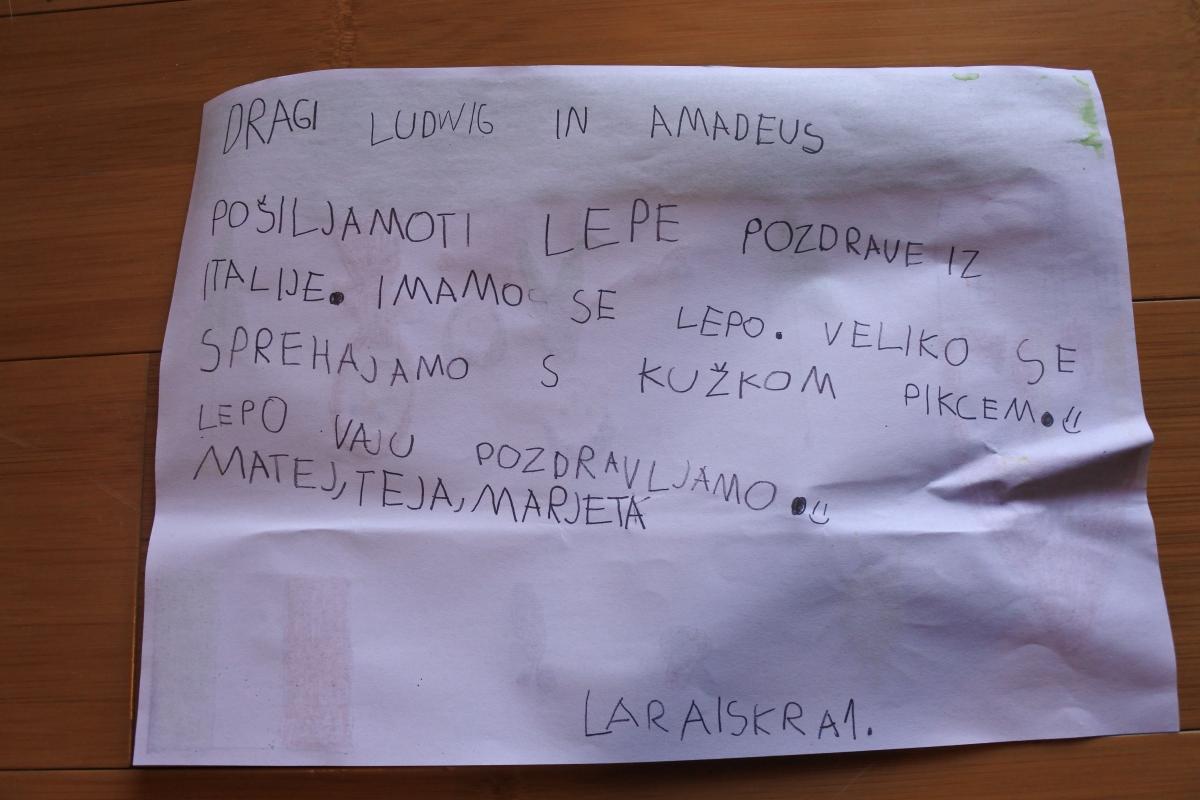 DRAGI LUDWIG IN AMADEUS
POŠILJAMOTI LEPE POZDRAVE IZ
ITALIJE. IMAMO SE LEPO. VELIKO SE
SPREHAJAMO S KUŽKOM PIKCEM.
LEPO VAJU POZDRAVLJAMO.
MATEJ, TEJA, MARJETA
LARAISKRA1.